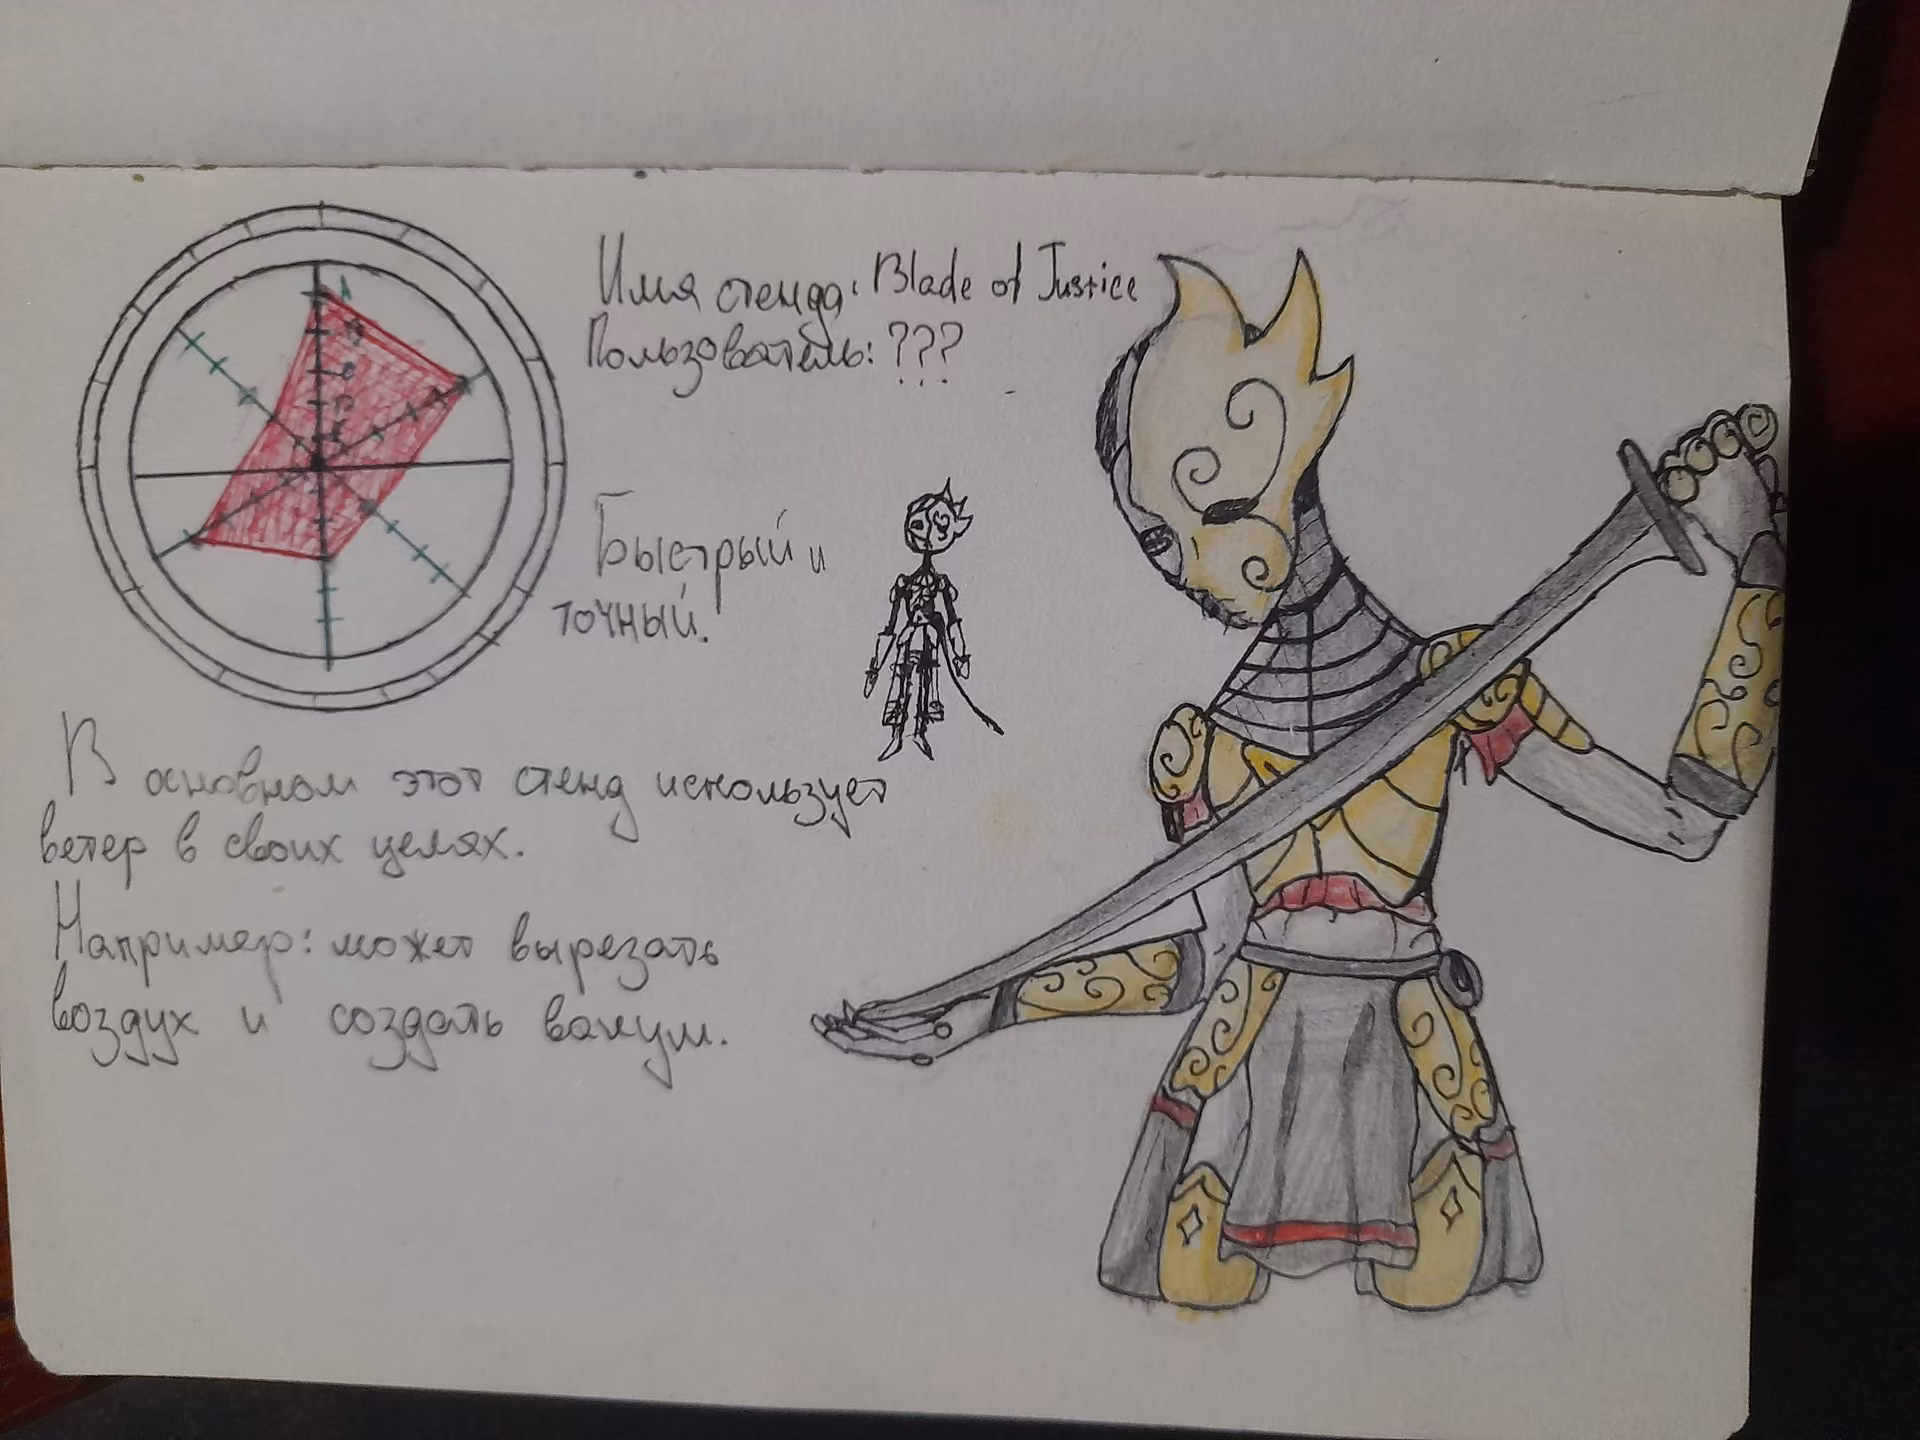 Имя стенда: Blade of Justice
Пользователь: ???
Быстрый и
точный.
В основном этот стенд использует
ветер в своих целях.
Например: может вырезать
воздух и создать вакум.